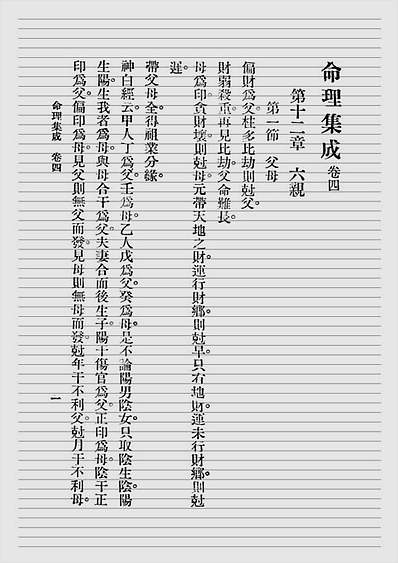 命理集成 卷四
第十二章 六親
第一節 父母
偏財爲父。柱多比劫則尅父。
財弱殺重。再見比劫。父命難長。
母爲印。貪財壞則尅母。元帶天地之財。運行財鄉。則尅早。只有地財。運未行財鄉。則尅
遲。
帶父母全。得祖業分緣。
神白經云。甲人丁爲父。壬爲母。乙人戊爲父。癸爲母。是不論陽男陰女。只取陰生陰陽
生陽。生我者爲母。與母合干爲父。夫妻合而後生子。陽干傷官爲父。正印爲母。陰干正
印爲父。偏印爲母。見父則無父而發。見母則無母而發。尅年干不利父。尅月干不利母。
命理集成 卷四 一